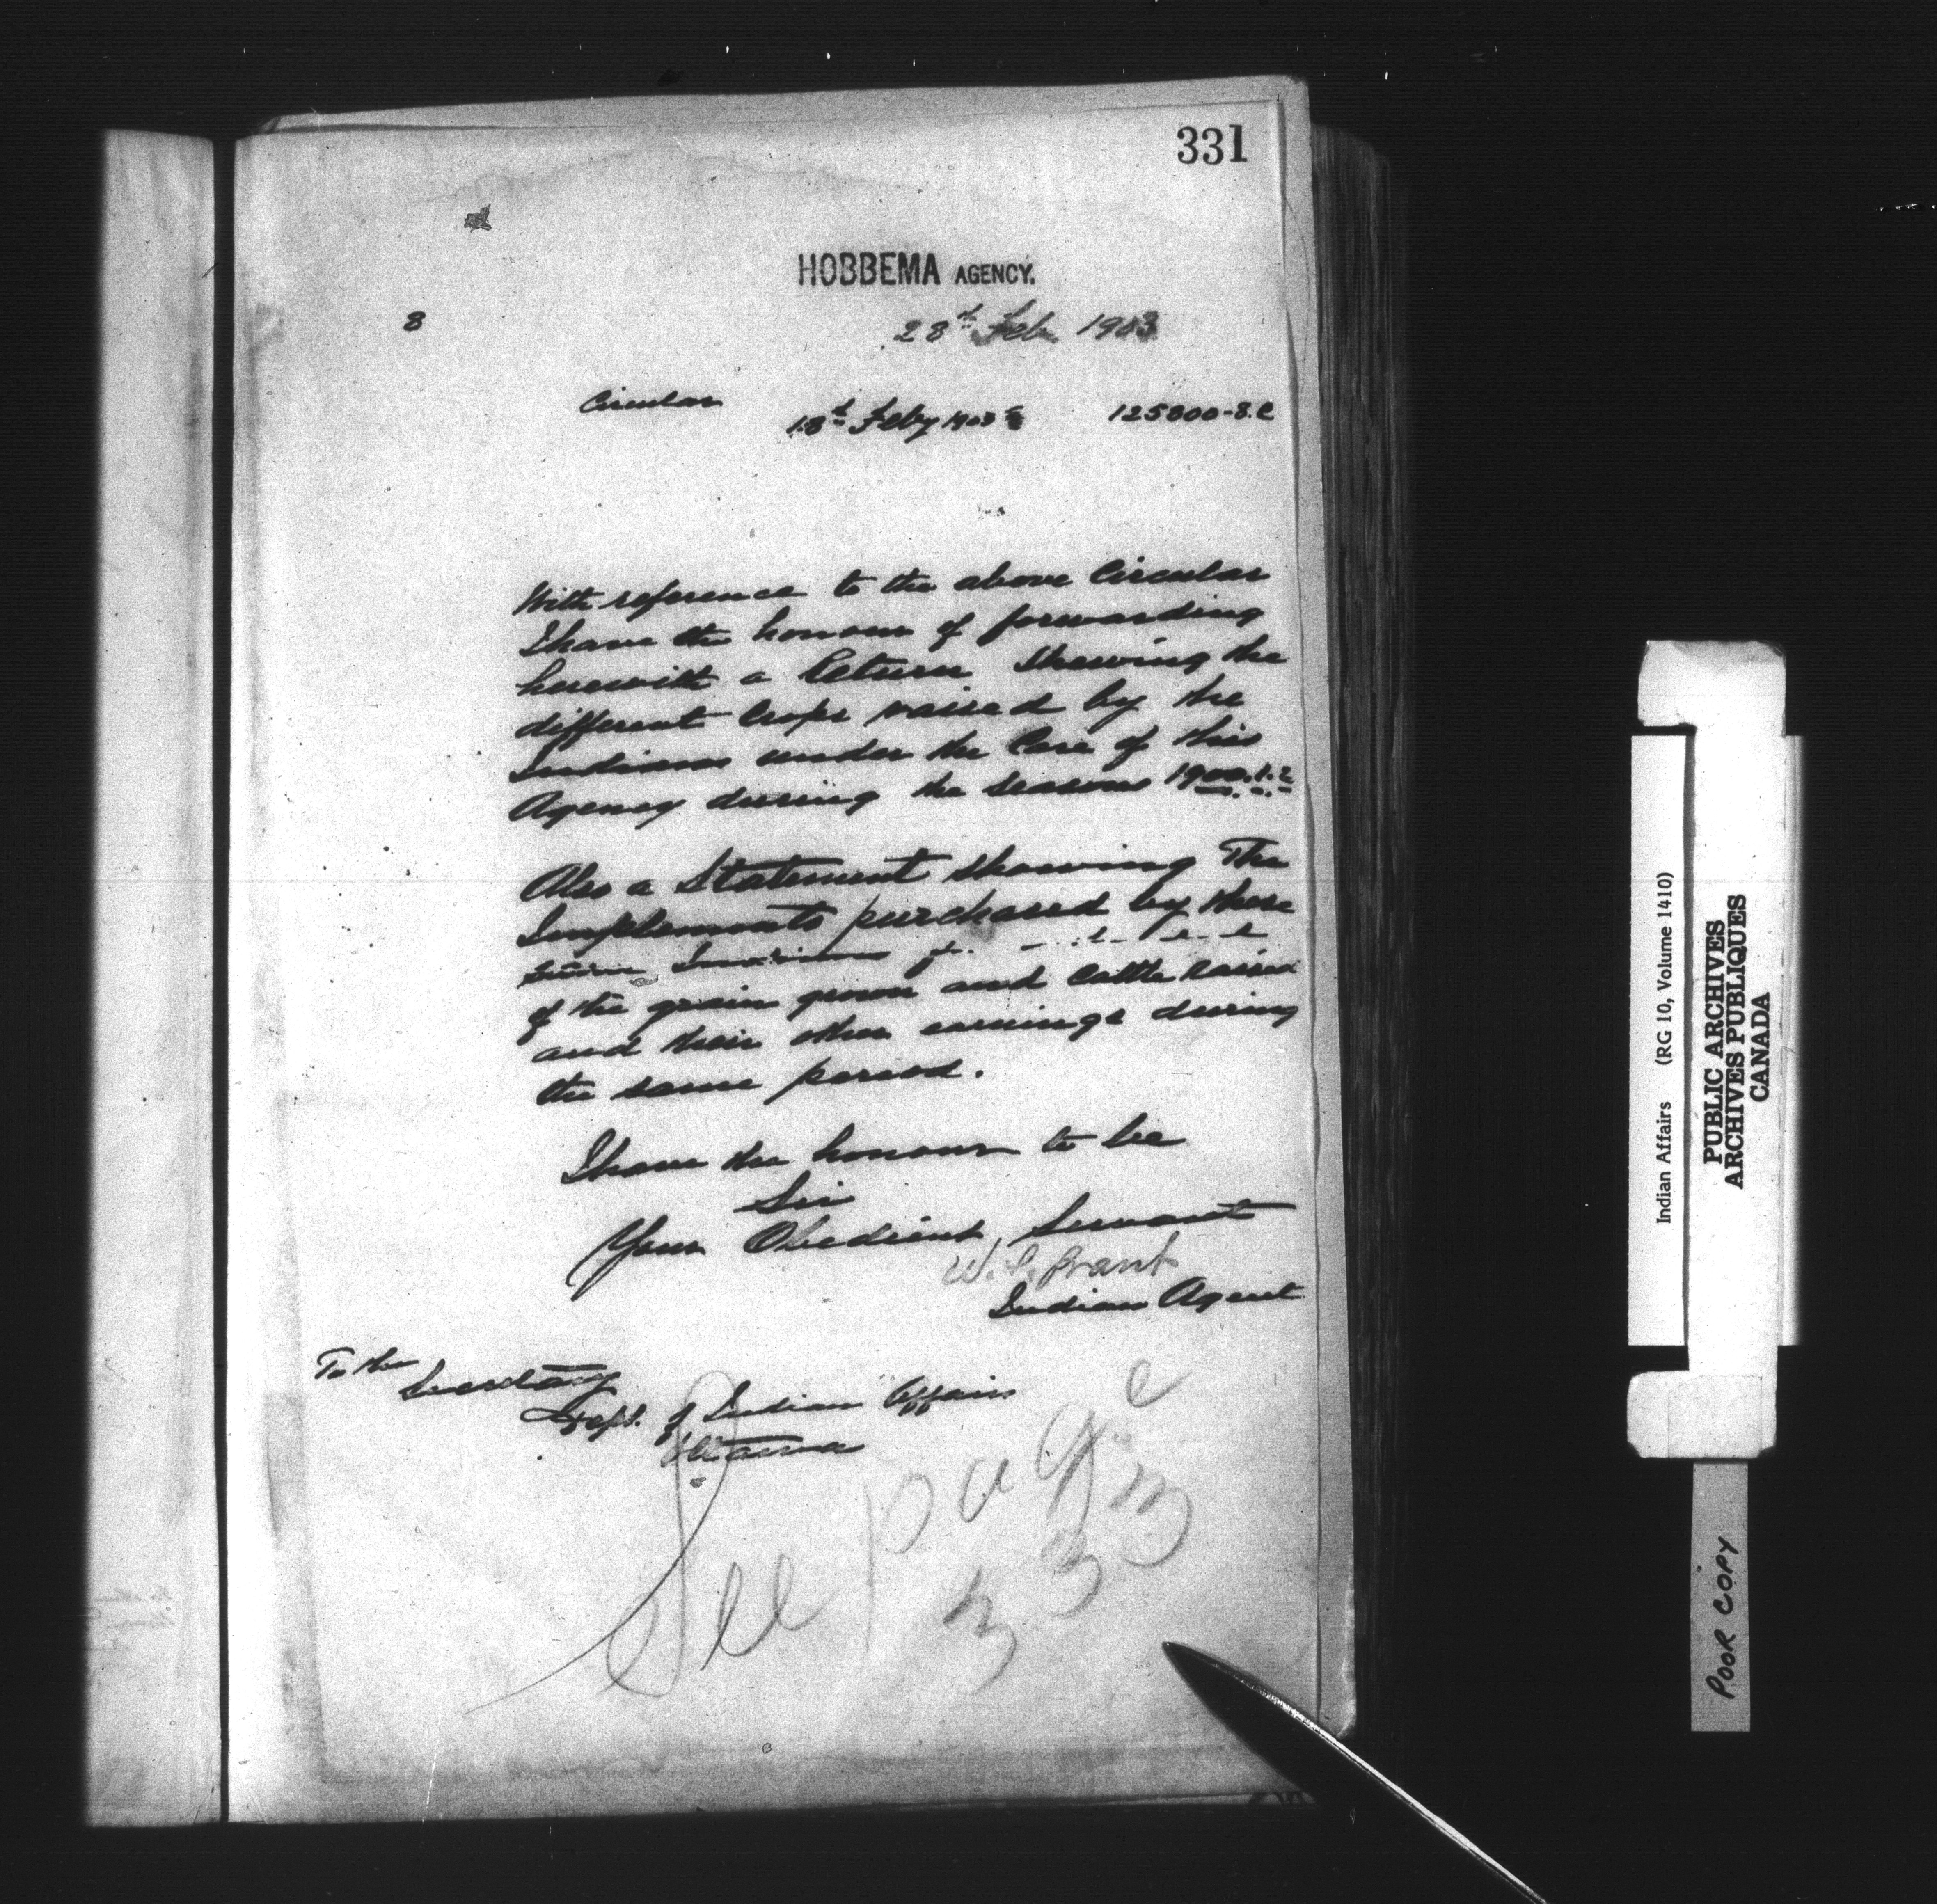 331
HOBBEMA AGENCY.
8
28th Feb 1903
Circular
18th Feby 1903
125800-8.C
With reference to the above Circular
I have the honour of forwarding
herewith a Return Shewing the
different Crops raised by the
Indians under the Care of this
Agency during the Seasons 1900.1.2
Also a Statement showing The
Implements purchased by these
Indians
of the grain grown and Cattle raised
and their other earnings during
the same period.
I have the honour to be
Sir
Your Obedient Servant
W. S. Grant
Indian Agent
To the
Secretary
Dept. of Indian Affairs
Ottawa
See page
333
Indian Affairs (RG 10, Volume 1410)
PUBLIC ARCHIVES
ARCHIVES PUBLIQUES
CANADA
POOR COPY